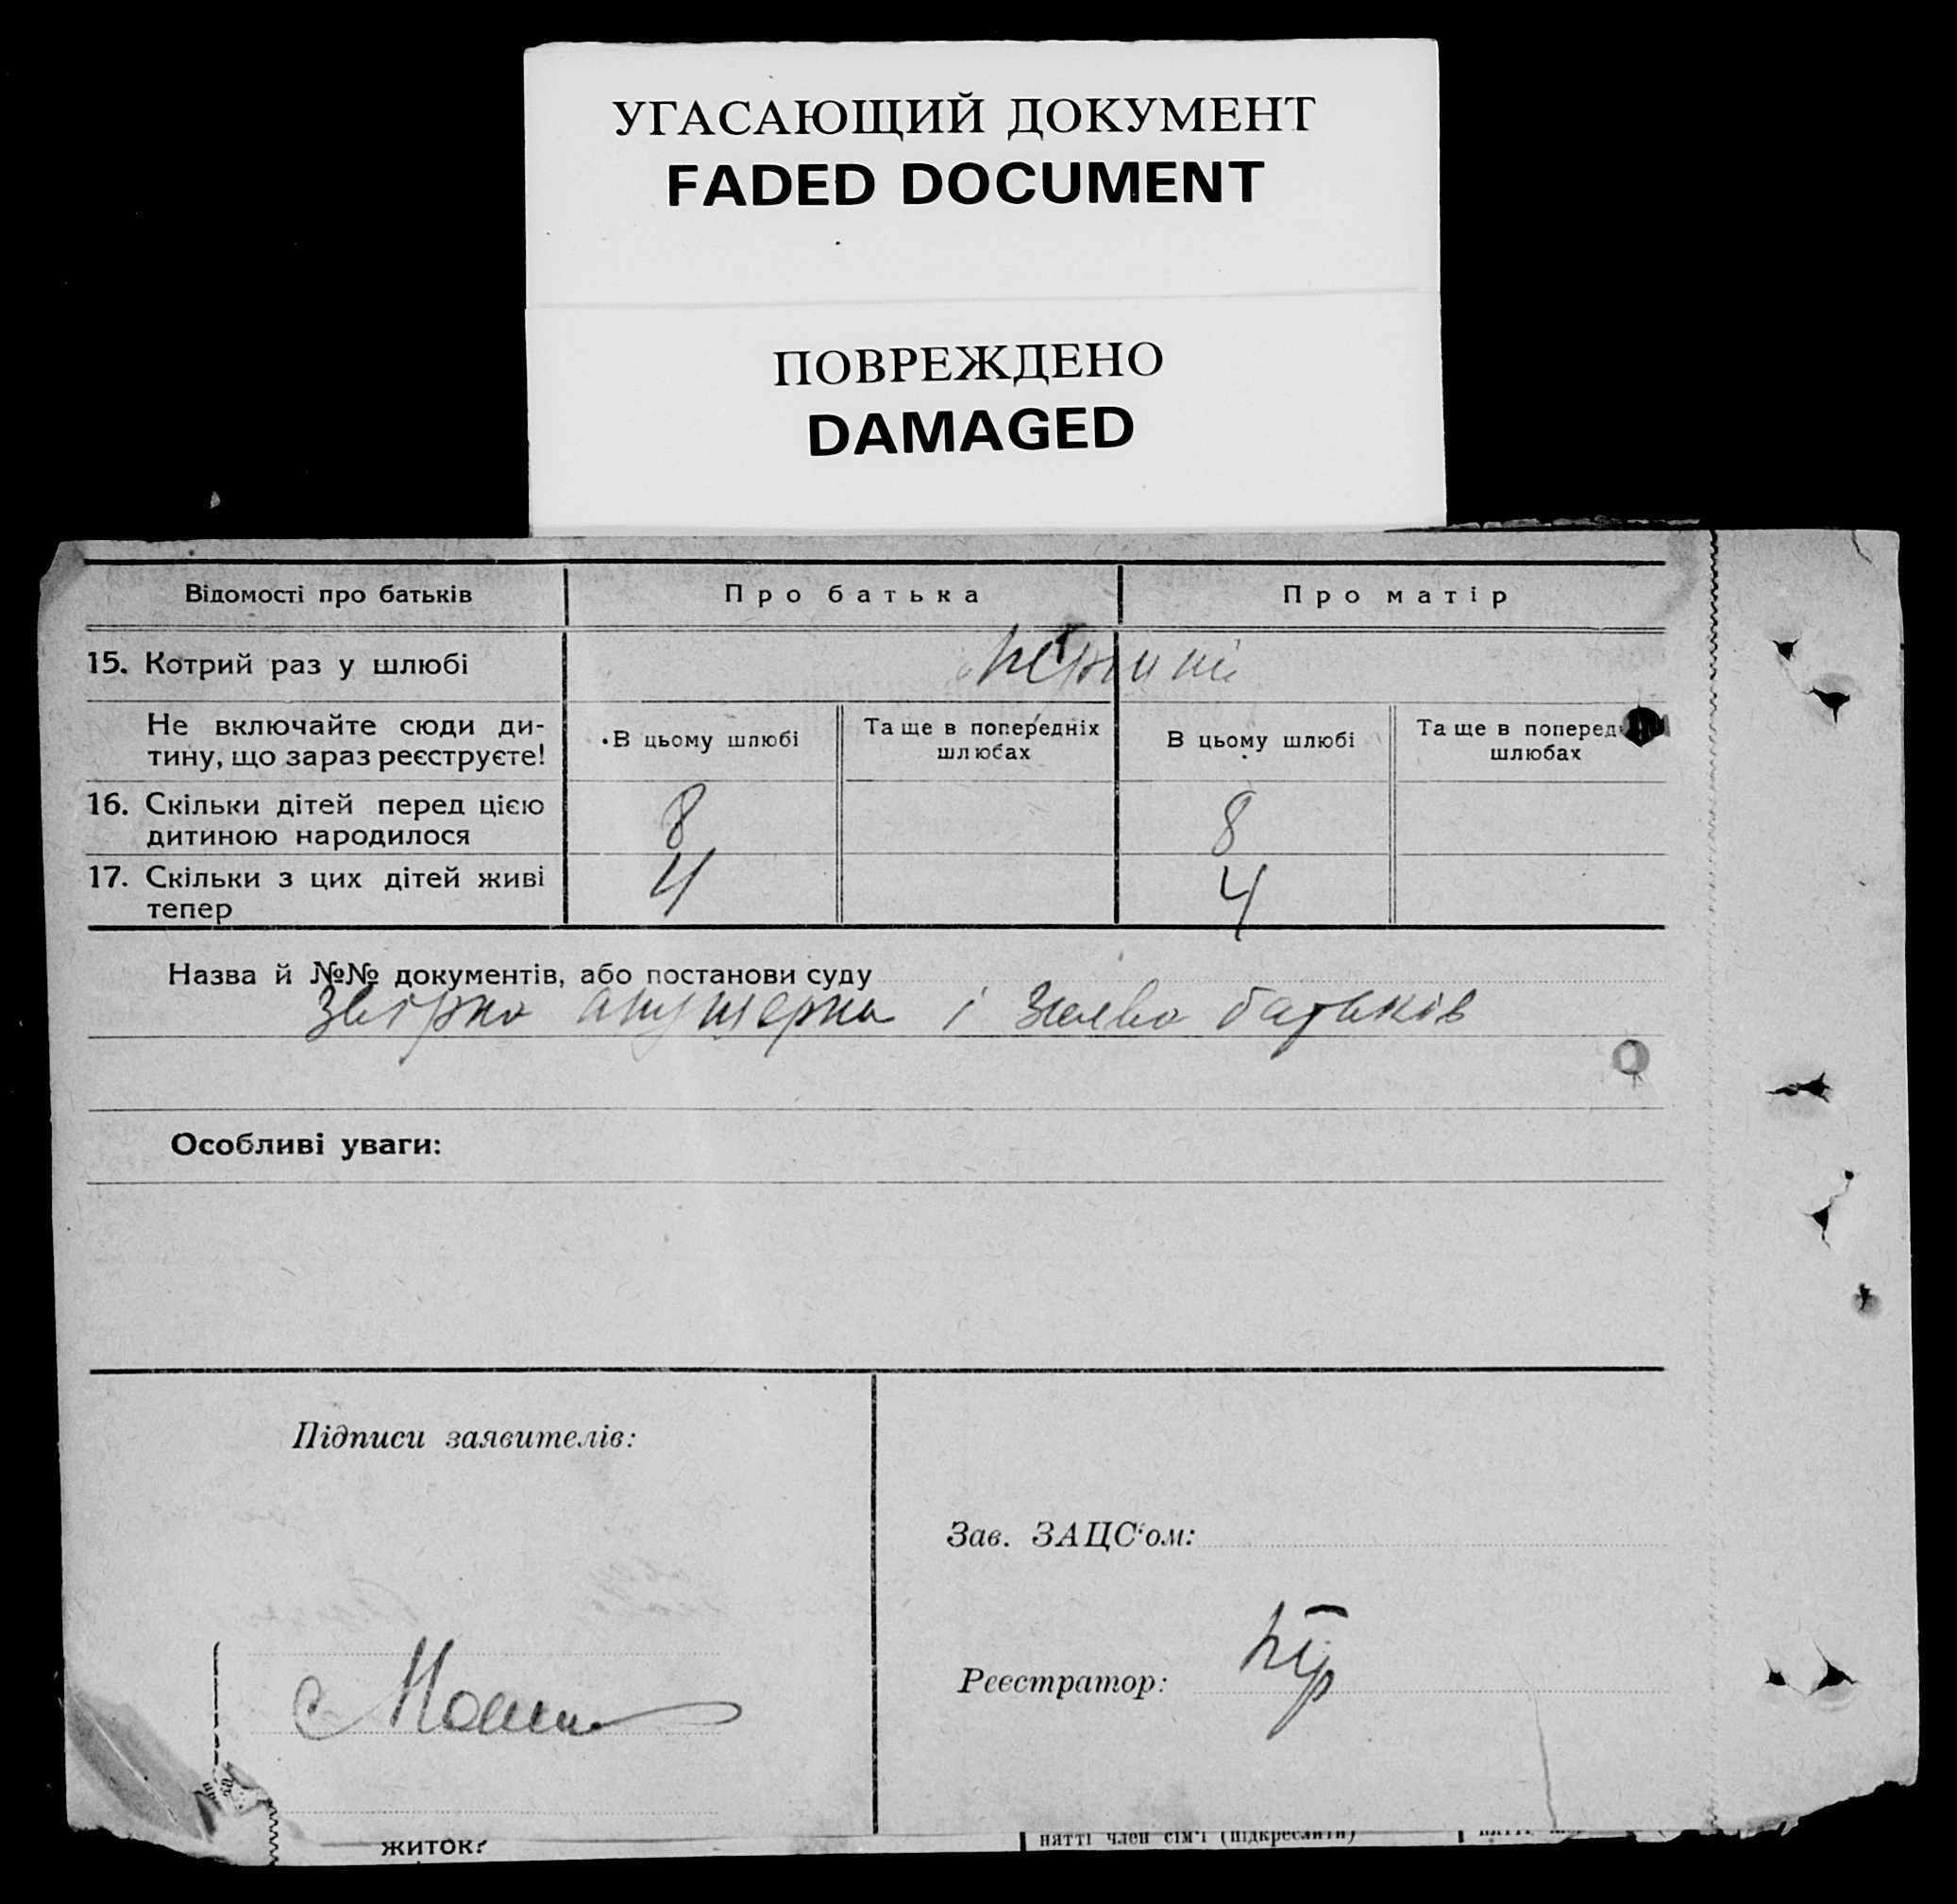 УГАСАЮЩИЙ ДОКУМЕНТ
FADED DOCUMENT
ПОВРЕЖДЕНО
DAMAGED
Відомості про батьків Про батька Про матір
15. Котрий раз у шлюбі перший
Не включайте сюди ди-
тину, що зараз реєструєте!
В цьому шлюбі
Та ще в попередніх
шлюбах
В цьому шлюбі
Та ще в поперед
шлюбах
16. Скільки дітей перед цією
дитиною народилося
8 8
17. Скільки з цих дітей живі
тепер
4 4
Назва й №№ документів, або постанови суду
акушерки і заява батьків
Особливі уваги:
Підписи заявителів:
Зав. ЗАЦС'ом:
Реєстратор:
житок?
нятті член сім'ї (підкреслити)